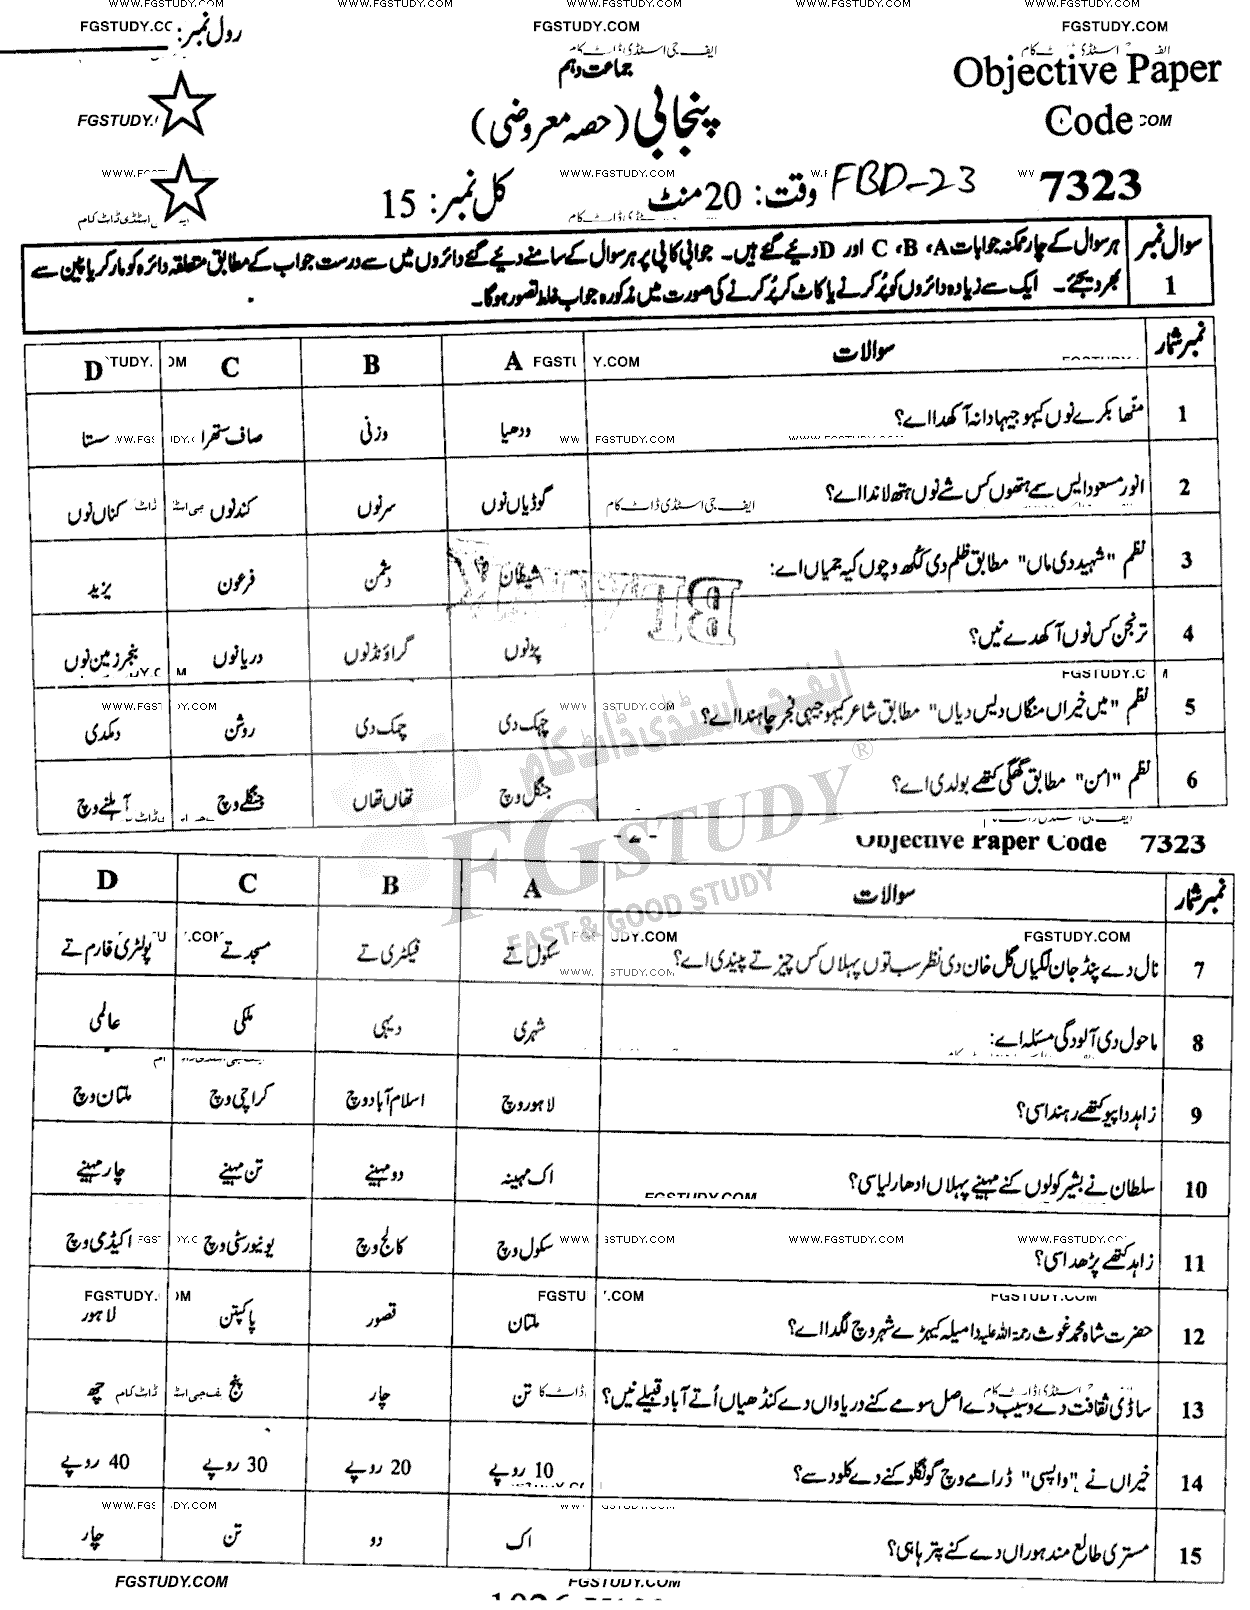 رول نمبر:
جماعت دہم
Objective Paper
Code
پنجابی (حصہ معروضی)
7323
FBD-23
وقت: 20 منٹ
کل نمبر: 15
سوال نمبر 1
ہر سوال کے چار ممکنہ جوابات A، B، C اور D دیئے گئے ہیں۔ جوابی کاپی پر ہر سوال کے سامنے دیئے گئے دائروں میں سے درست جواب کے مطابق متعلقہ دائرہ کو مارکر یا پین سے
بھر دیجئے۔ ایک سے زیادہ دائروں کو پُر کرنے یا کاٹ کر پُر کرنے کی صورت میں مذکورہ جواب غلط تصور ہوگا۔
نمبر شمار سوالات A B C D
1 منّھا بکرے نوں کیہو جیہا دانہ آکھدا اے؟ ودھیا وزنی صاف ستھرا سستا
2 انور مسعود ایس سمے ہتھوں کس شے نوں ہتھ لاندا اے؟ گوڈیاں نوں سر نوں کند نوں کناں نوں
3 نظم "شہید دی ماں" مطابق ظلم دی کُکھ وچوں کیہ جمیاں اے: شیطان دشمن فرعون یزید
4 ترنجن کس نوں آکھدے نیں؟ پڑ نوں گراؤنڈ نوں دریا نوں بنجر زمین نوں
5 نظم "میں خیراں منگاں دیس دیاں" مطابق شاعر کیہو جیہی فجر چاہندا اے؟ چہک دی چمک دی روشن دمکدی
6 نظم "امن" مطابق گھگی کتھے بولدی اے؟ جنگل وچ تھاں تھاں جنگلے وچ آہلنے وچ
-2-
Objective Paper Code 7323
نمبر شمار سوالات A B C D
7 نال دے پنڈ جان لگیاں گل خان دی نظر سب توں پہلاں کس چیز تے پیندی اے؟ سکول تے فیکٹری تے مسجد تے پولٹری فارم تے
8 ماحول دی آلودگی مسئلہ اے: شہری دیہی ملکی عالمی
9 زاہد دا پیو کتھے رہندا سی؟ لاہور وچ اسلام آباد وچ کراچی وچ ملتان وچ
10 سلطان نے بشیر کولوں کنے مہینے پہلاں ادھار لیا سی؟ اک مہینہ دو مہینے تن مہینے چار مہینے
11 زاہد کتھے پڑھدا سی؟ سکول وچ کالج وچ یونیورسٹی وچ اکیڈمی وچ
12 حضرت شاہ محمد غوث رحمۃ اللہ علیہ دا میلہ کیہڑے شہر وچ لگدا اے؟ ملتان قصور پاکپتن لاہور
13 ساڈی ثقافت دے وسیب دے اصل سومے کنے دریاواں دے کنڈھیاں اُتے آباد قبیلے نیں؟ تن چار پنج چھ
14 خیراں نے "واپسی" ڈرامے وچ گونگلو کنے دے کلو دسے؟ 10 روپے 20 روپے 30 روپے 40 روپے
15 مستری طالع مند ہوراں دے کنے پتر ہاہی؟ اک دو تن چار
FGSTUDY.COM
WWW.FGSTUDY.COM
ایف جی اسٹڈی ڈاٹ کام
FGSTUDY®
FAST & GOOD STUDY